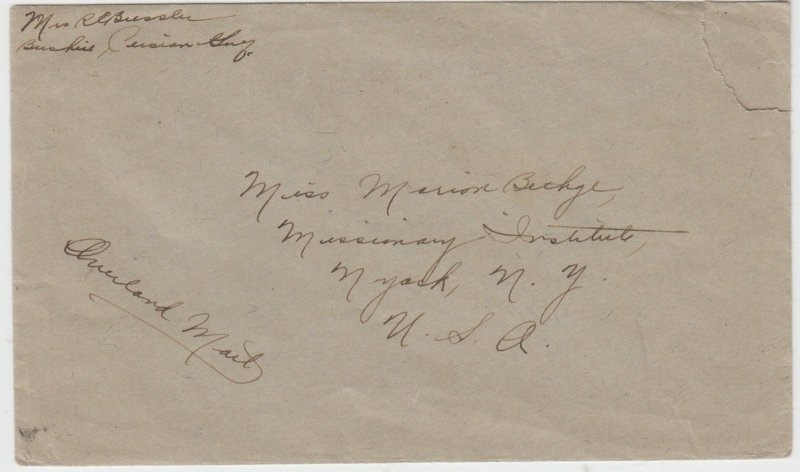 Mrs R E Bressler
Bushire, Persian Gulf.
Miss Marion Beckge,
Missionary Institute,
Nyack, N. Y.
U. S. A.
Overland Mail